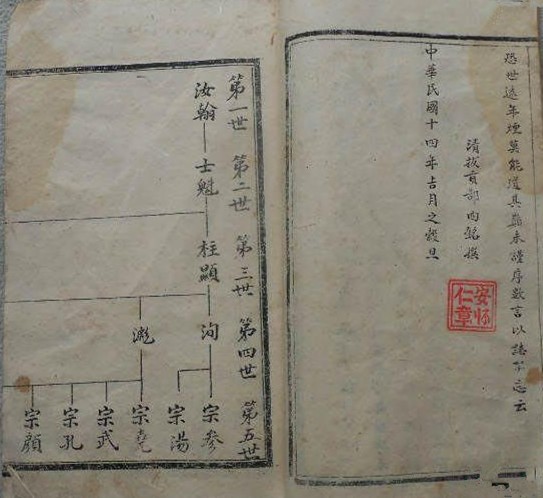 恐世遠年湮莫能道其顛末謹序數言以誌不忘云
清拔貢
撰
中華民國十四年吉月之穀旦
安怀
仁章
第一世 第二世 第三世 第四世 第五世
汝翰 士魁 柱顯 洵 宗參
宗湯
宗堯
宗武
宗孔
宗顏